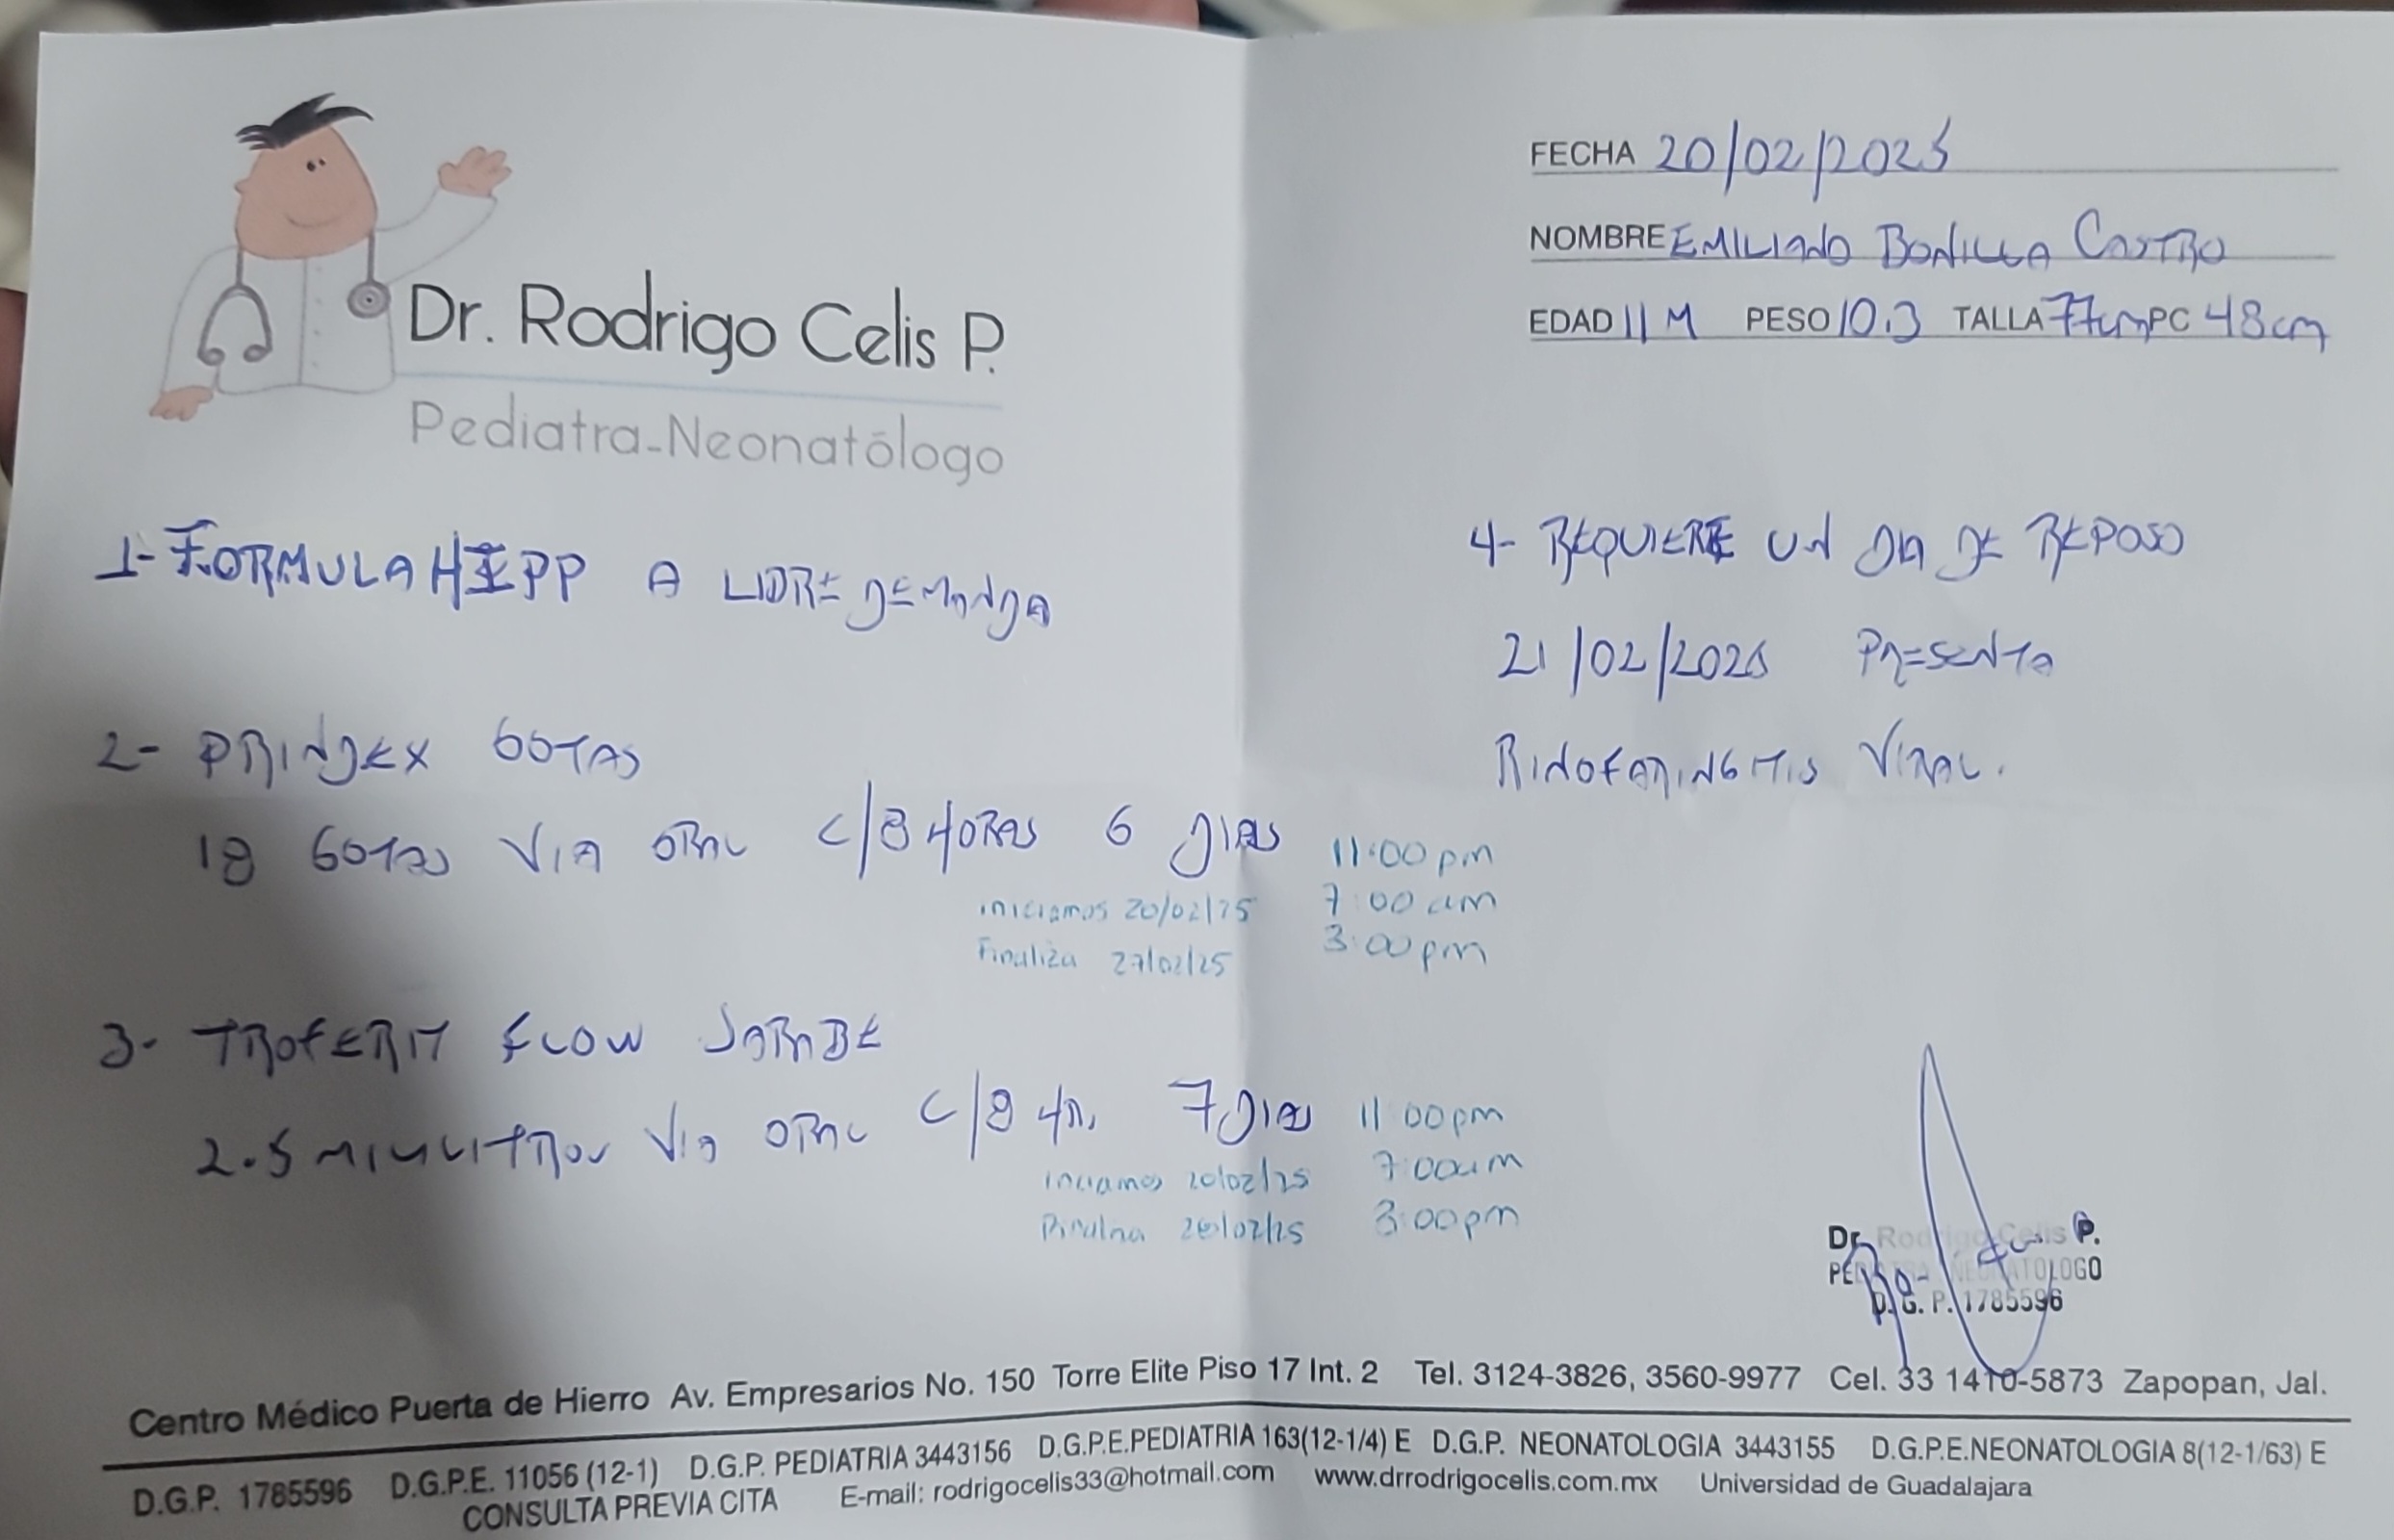 Dr. Rodrigo Celis P.
Pediatra-Neonatólogo
FECHA 20/02/2025
NOMBRE EMILIANO BONILLA CASTRO
EDAD 11 M PESO 10.3 TALLA 77cm PC 48cm
1- FORMULA HIPP A LIBRE DEMANDA
2- PRINDEX GOTAS
18 GOTAS VIA ORAL C/8 HORAS 6 DIAS
11:00 pm
iniciamos 20/02/25 7:00 am
Finaliza 27/02/25 3:00 pm
3- TROFERIT FLOW JARABE
2.5 MILILITROS VIA ORAL C/8 HR. 7 DIAS 11:00 pm
iniciamos 20/02/25 7:00am
Finaliza 26/02/25 3:00pm
4- REQUIERE UN DIA DE REPOSO
21/02/2025 PRESENTA
RINOFARINGITIS VIRAL.
Dr. Rodrigo Celis P.
PEDIATRA NEONATOLOGO
D.G.P. 1785596
Centro Médico Puerta de Hierro Av. Empresarios No. 150 Torre Elite Piso 17 Int. 2 Tel. 3124-3826, 3560-9977 Cel. 33 1410-5873 Zapopan, Jal.
D.G.P. 1785596 D.G.P.E. 11056 (12-1) D.G.P. PEDIATRIA 3443156 D.G.P.E.PEDIATRIA 163(12-1/4) E D.G.P. NEONATOLOGIA 3443155 D.G.P.E.NEONATOLOGIA 8(12-1/63) E
CONSULTA PREVIA CITA E-mail: rodrigocelis33@hotmail.com www.drrodrigocelis.com.mx Universidad de Guadalajara